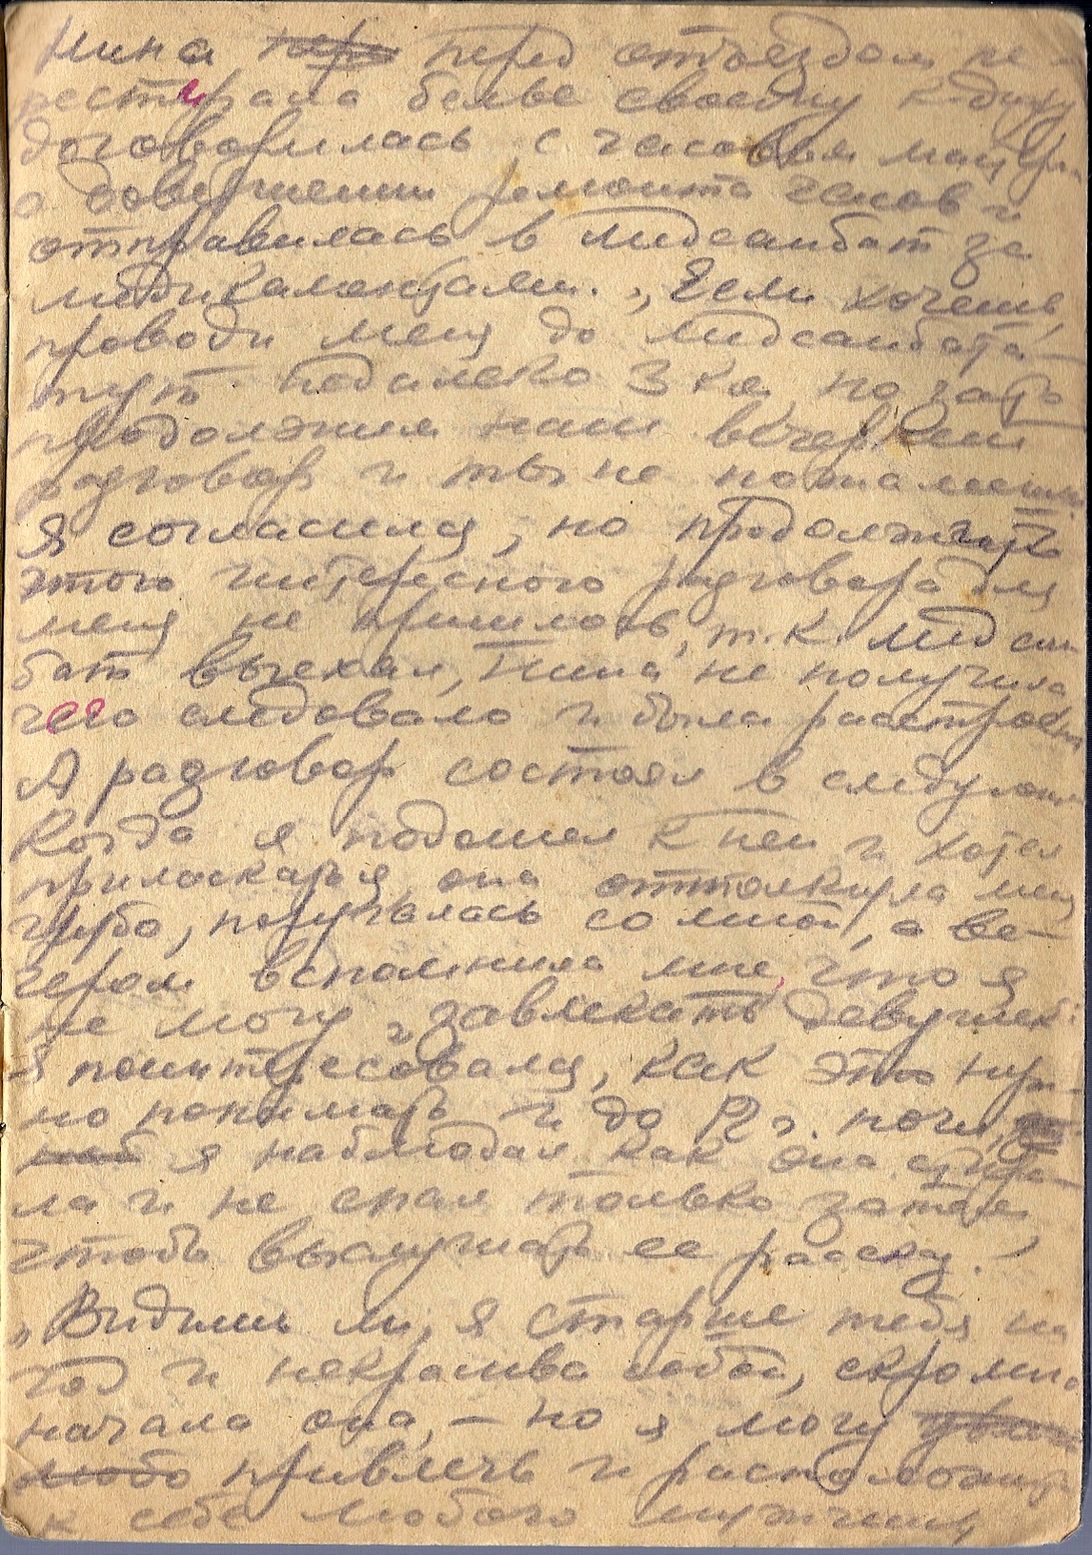 Нина перед отъездом пе-
рестирала белье своему к-диру
договорилась с часовым мастером
о довершении ремонта часов и
отправилась в медсанбат за
медикаментами. „Если хочешь,
проводи меня до медсанбата –
тут недалеко 3 км, но зато
продолжим наш вечерний
разговор и ты не пожалеешь.
Я согласился, но продолжать
этого интересного разговора для
меня не пришлось, т.к. медсан
бат выехал, Нина не получила
чего следовало и была расстроена
А разговор состоял в следующем
Когда я подошел к ней и хотел
приласкаться, она оттолкнула меня
грубо, поругалась со мной, а ве-
чером вспомнила мне, что я
не могу „завлекать девушек"
Я поинтересовался, как это нуж-
но понимать и до 12 ч. ночи,
я наблюдал как она стира-
ла и не спал только затем,
чтобы выслушать ее рассказ.
„Видишь ли, я старше тебя на
год и некрасива собой, скромно
начала она, – но я могу
привлечь и расположить
к себе любого мужчину,